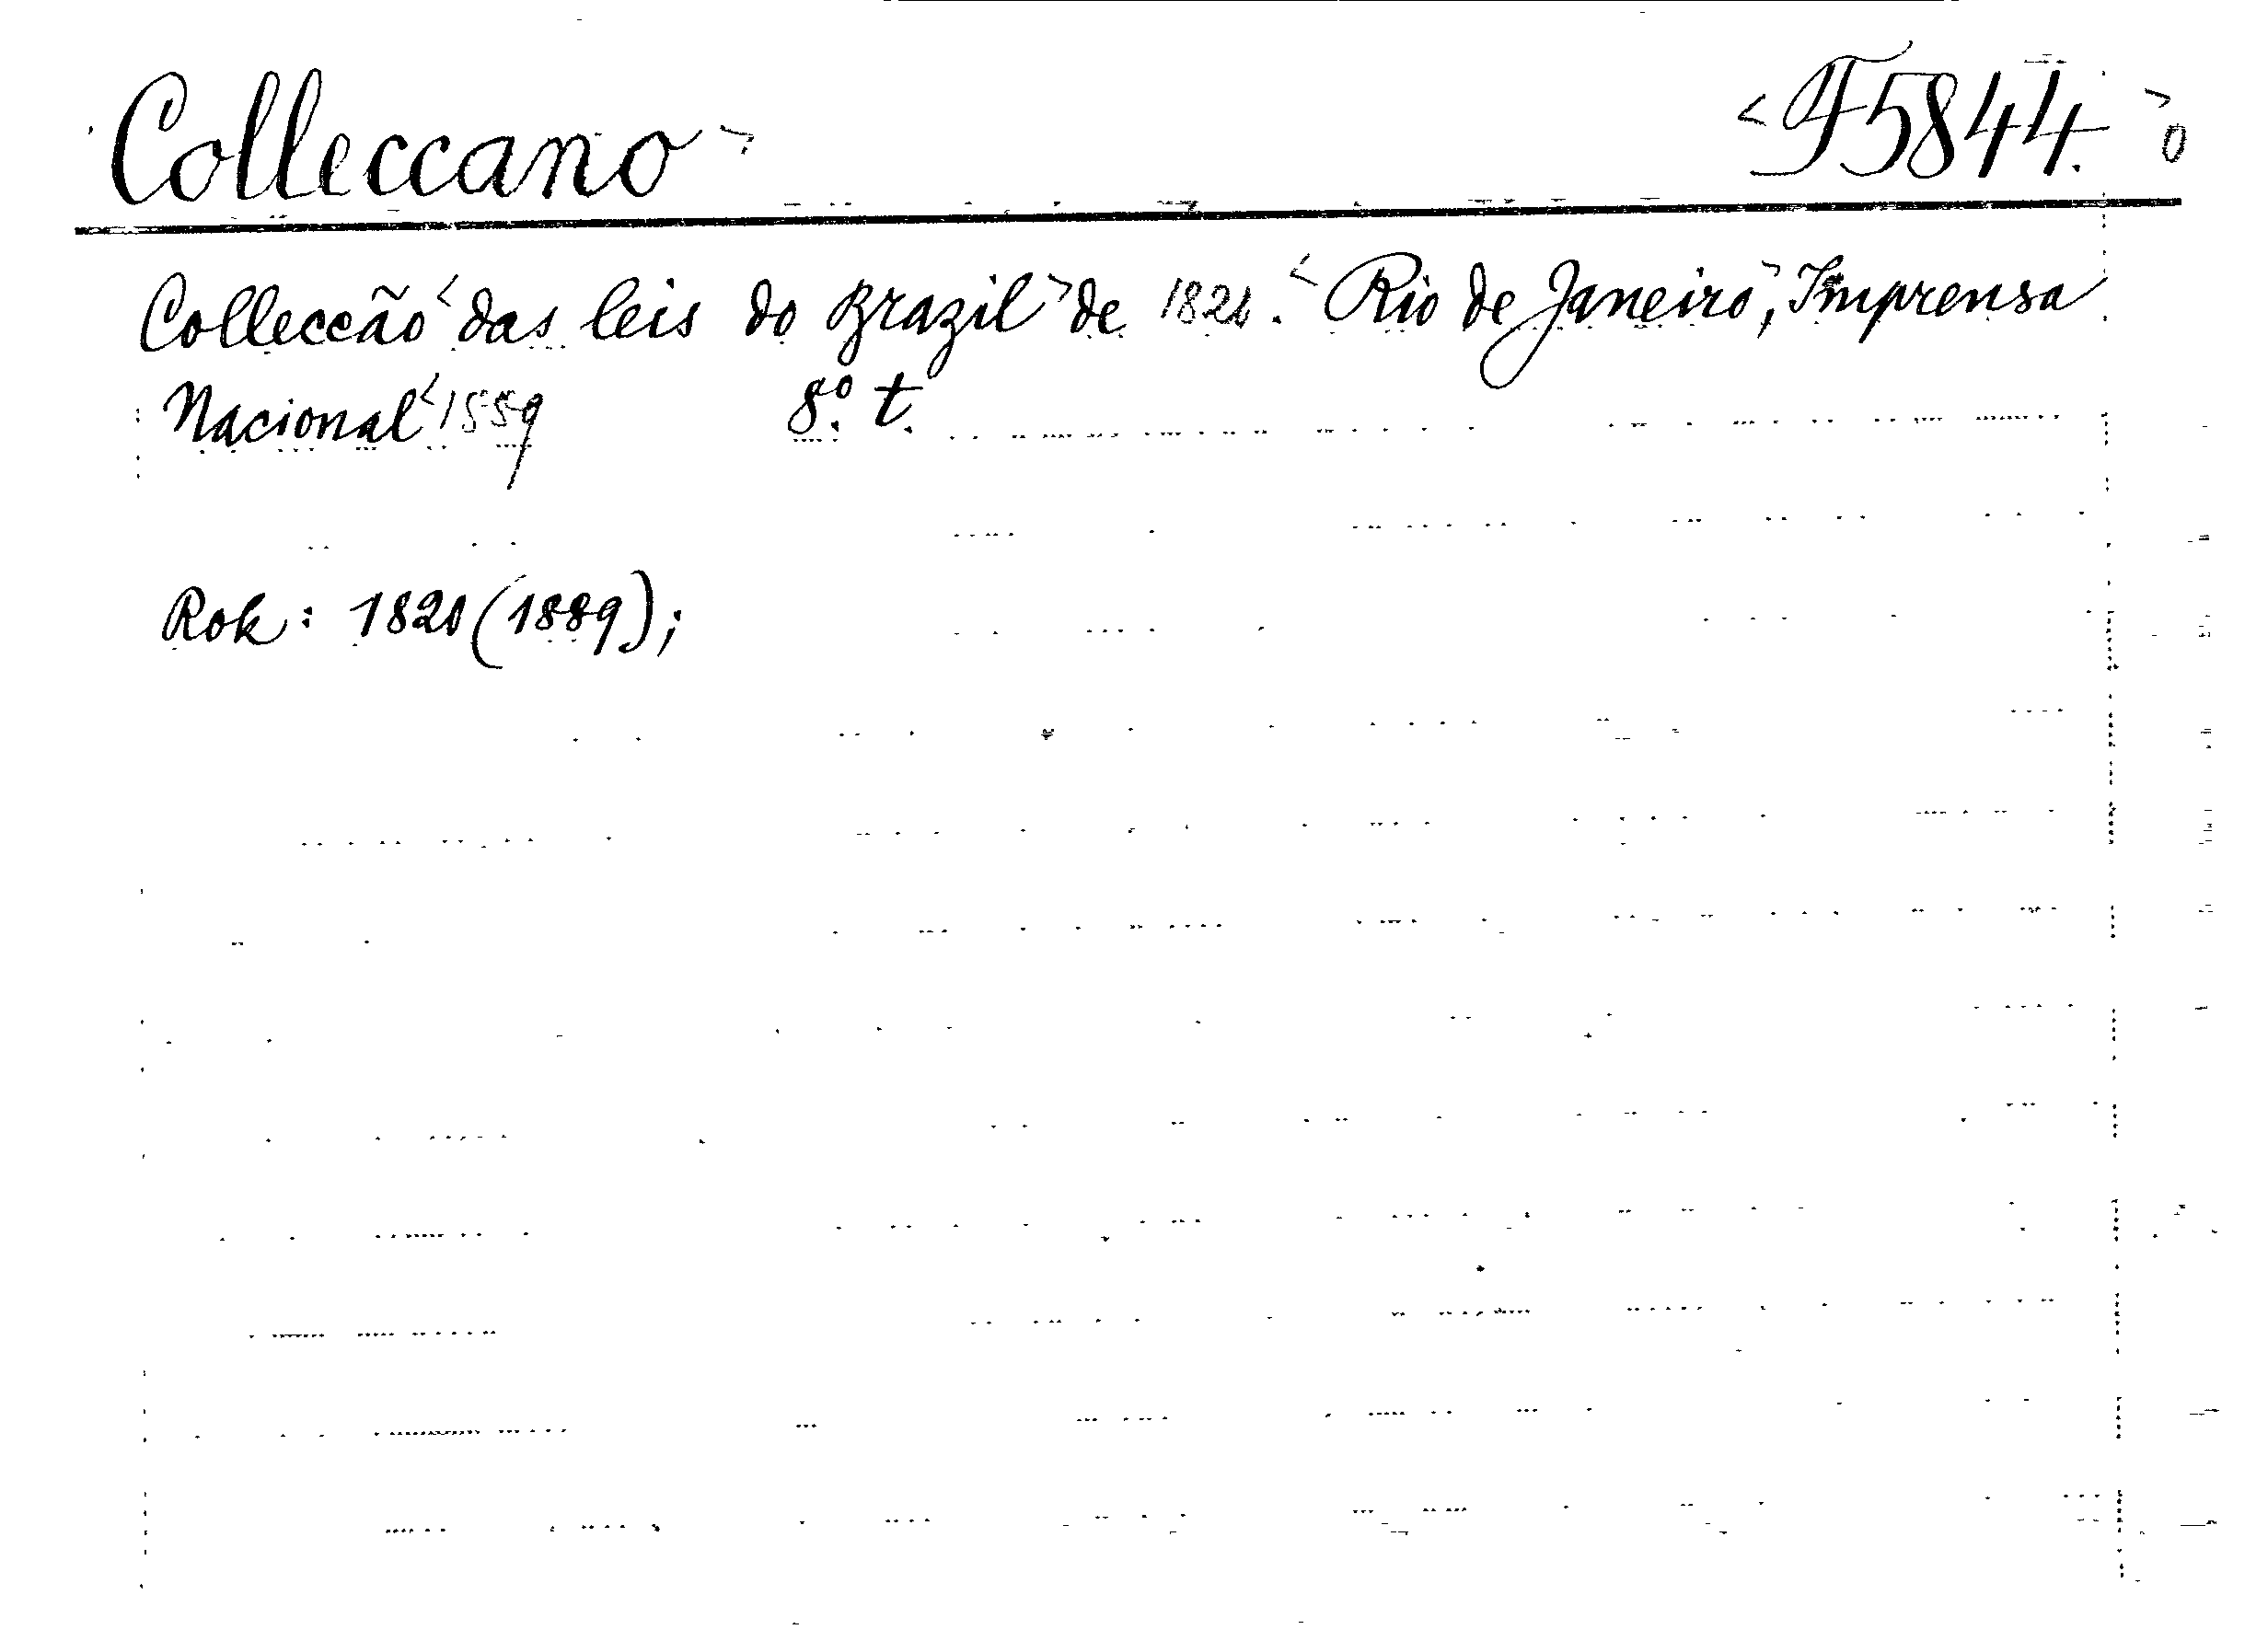 Colleccano <F5844.>
Collecção das leis do Brazil de 182 . Rio de Janeiro, Imprensa
Nacional 1889 8º. t.
Rok: 1820 (1889);